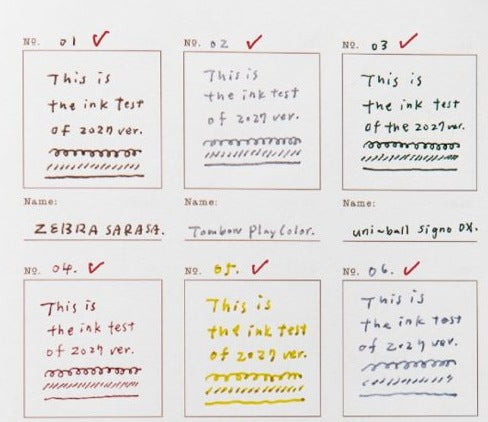 №. 01 ✓
This is
the ink test
of 2027 ver.
Name:
ZEBRA SARASA.
№. 02 ✓
This is
the ink test
of 2027 ver.
Name:
Tombow PlayColor.
№. 03 ✓
This is
the ink test
of the 2027 ver.
Name:
uni-ball signo DX.
№. 04. ✓
This is
the ink test
of 2027 ver.
№. 05. ✓
This is
the ink test
of 2027 ver.
№. 06. ✓
This is
the ink test
of 2027 ver.